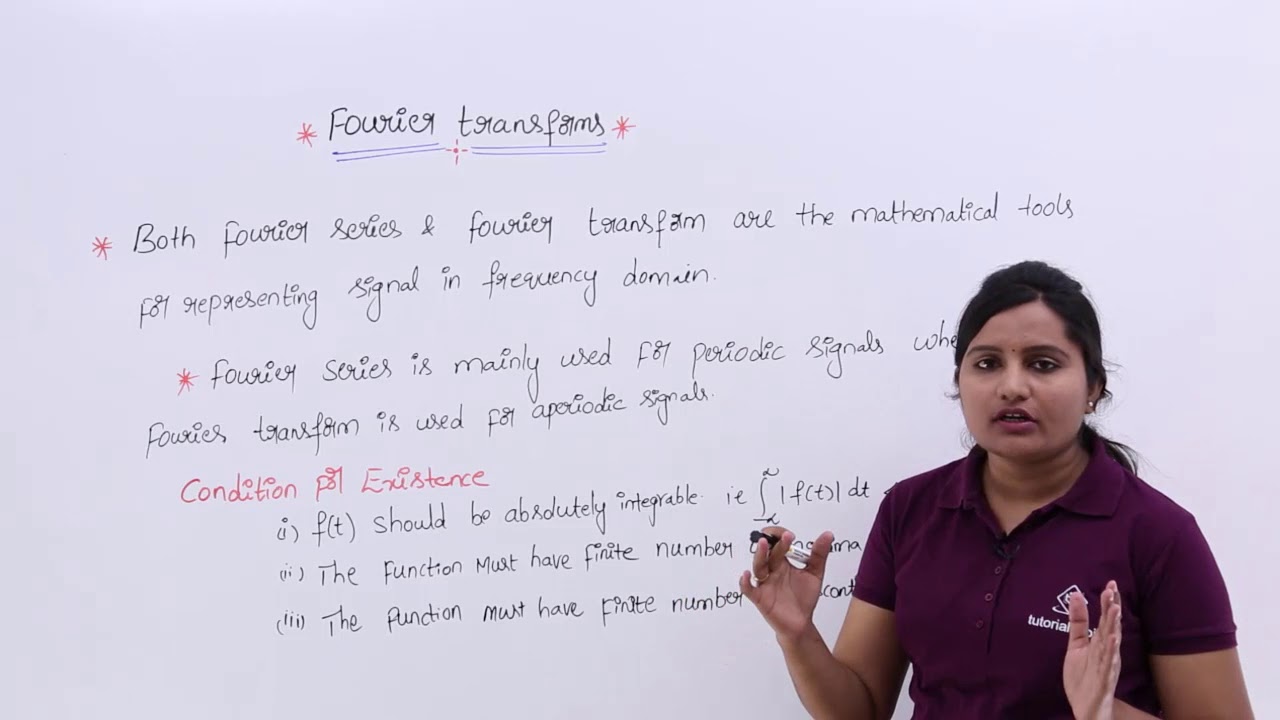 * Fourier transforms *
* Both fourier series & fourier transform are the mathematical tools
for representing signal in frequency domain.
* fourier series is mainly used for periodic signals whe
Fourier transform is used for aperiodic signals.
Condition for Existence
i) f(t) should be absolutely integrable. ie ∫_{-∞}^{∞} |f(t)| dt <
(ii) The function Must have finite number
(iii) The function must have finite number
tutorial